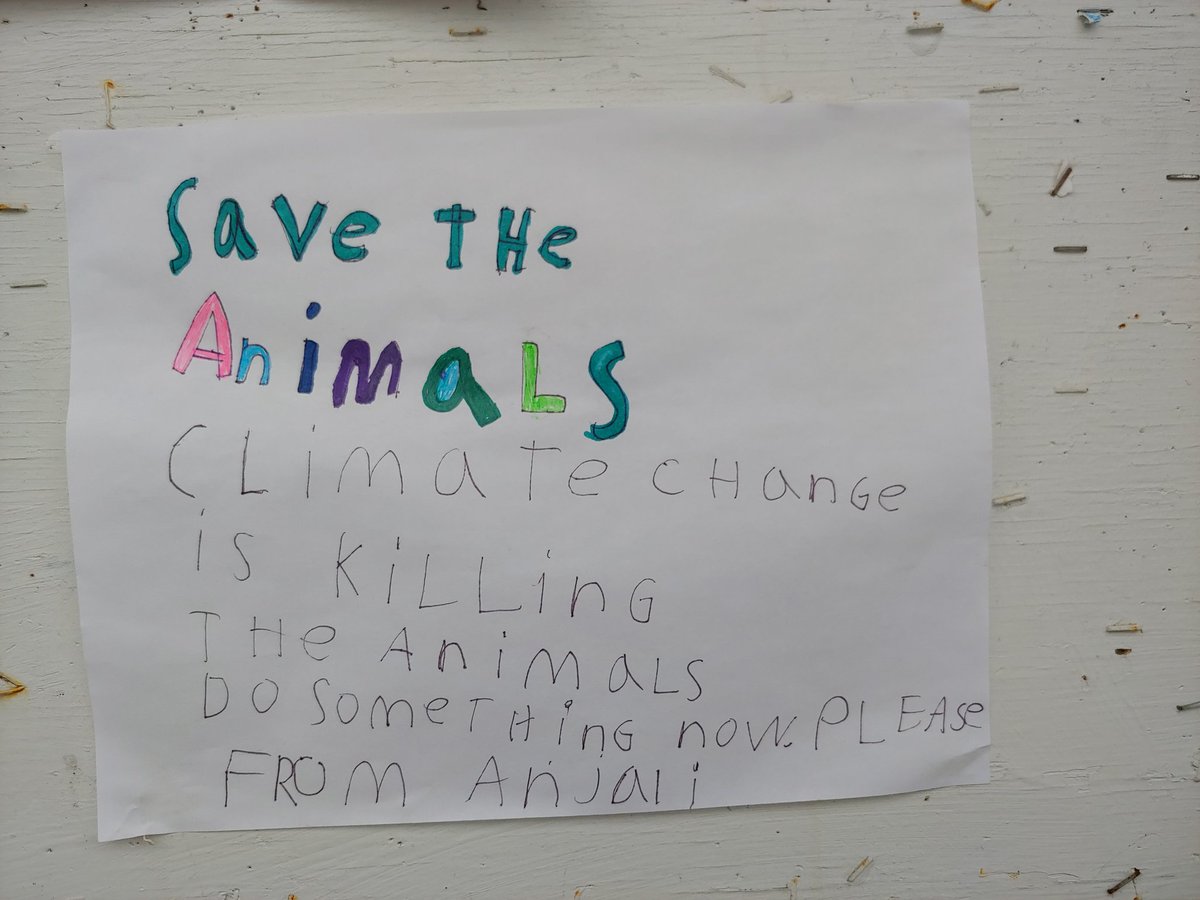 Save THe
AniMaLS
CLiMaTe CHanGe
iS KiLLinG
THe AniMaLS
DO SOmeTHinG nOw. PLEASe
FROM AnJali